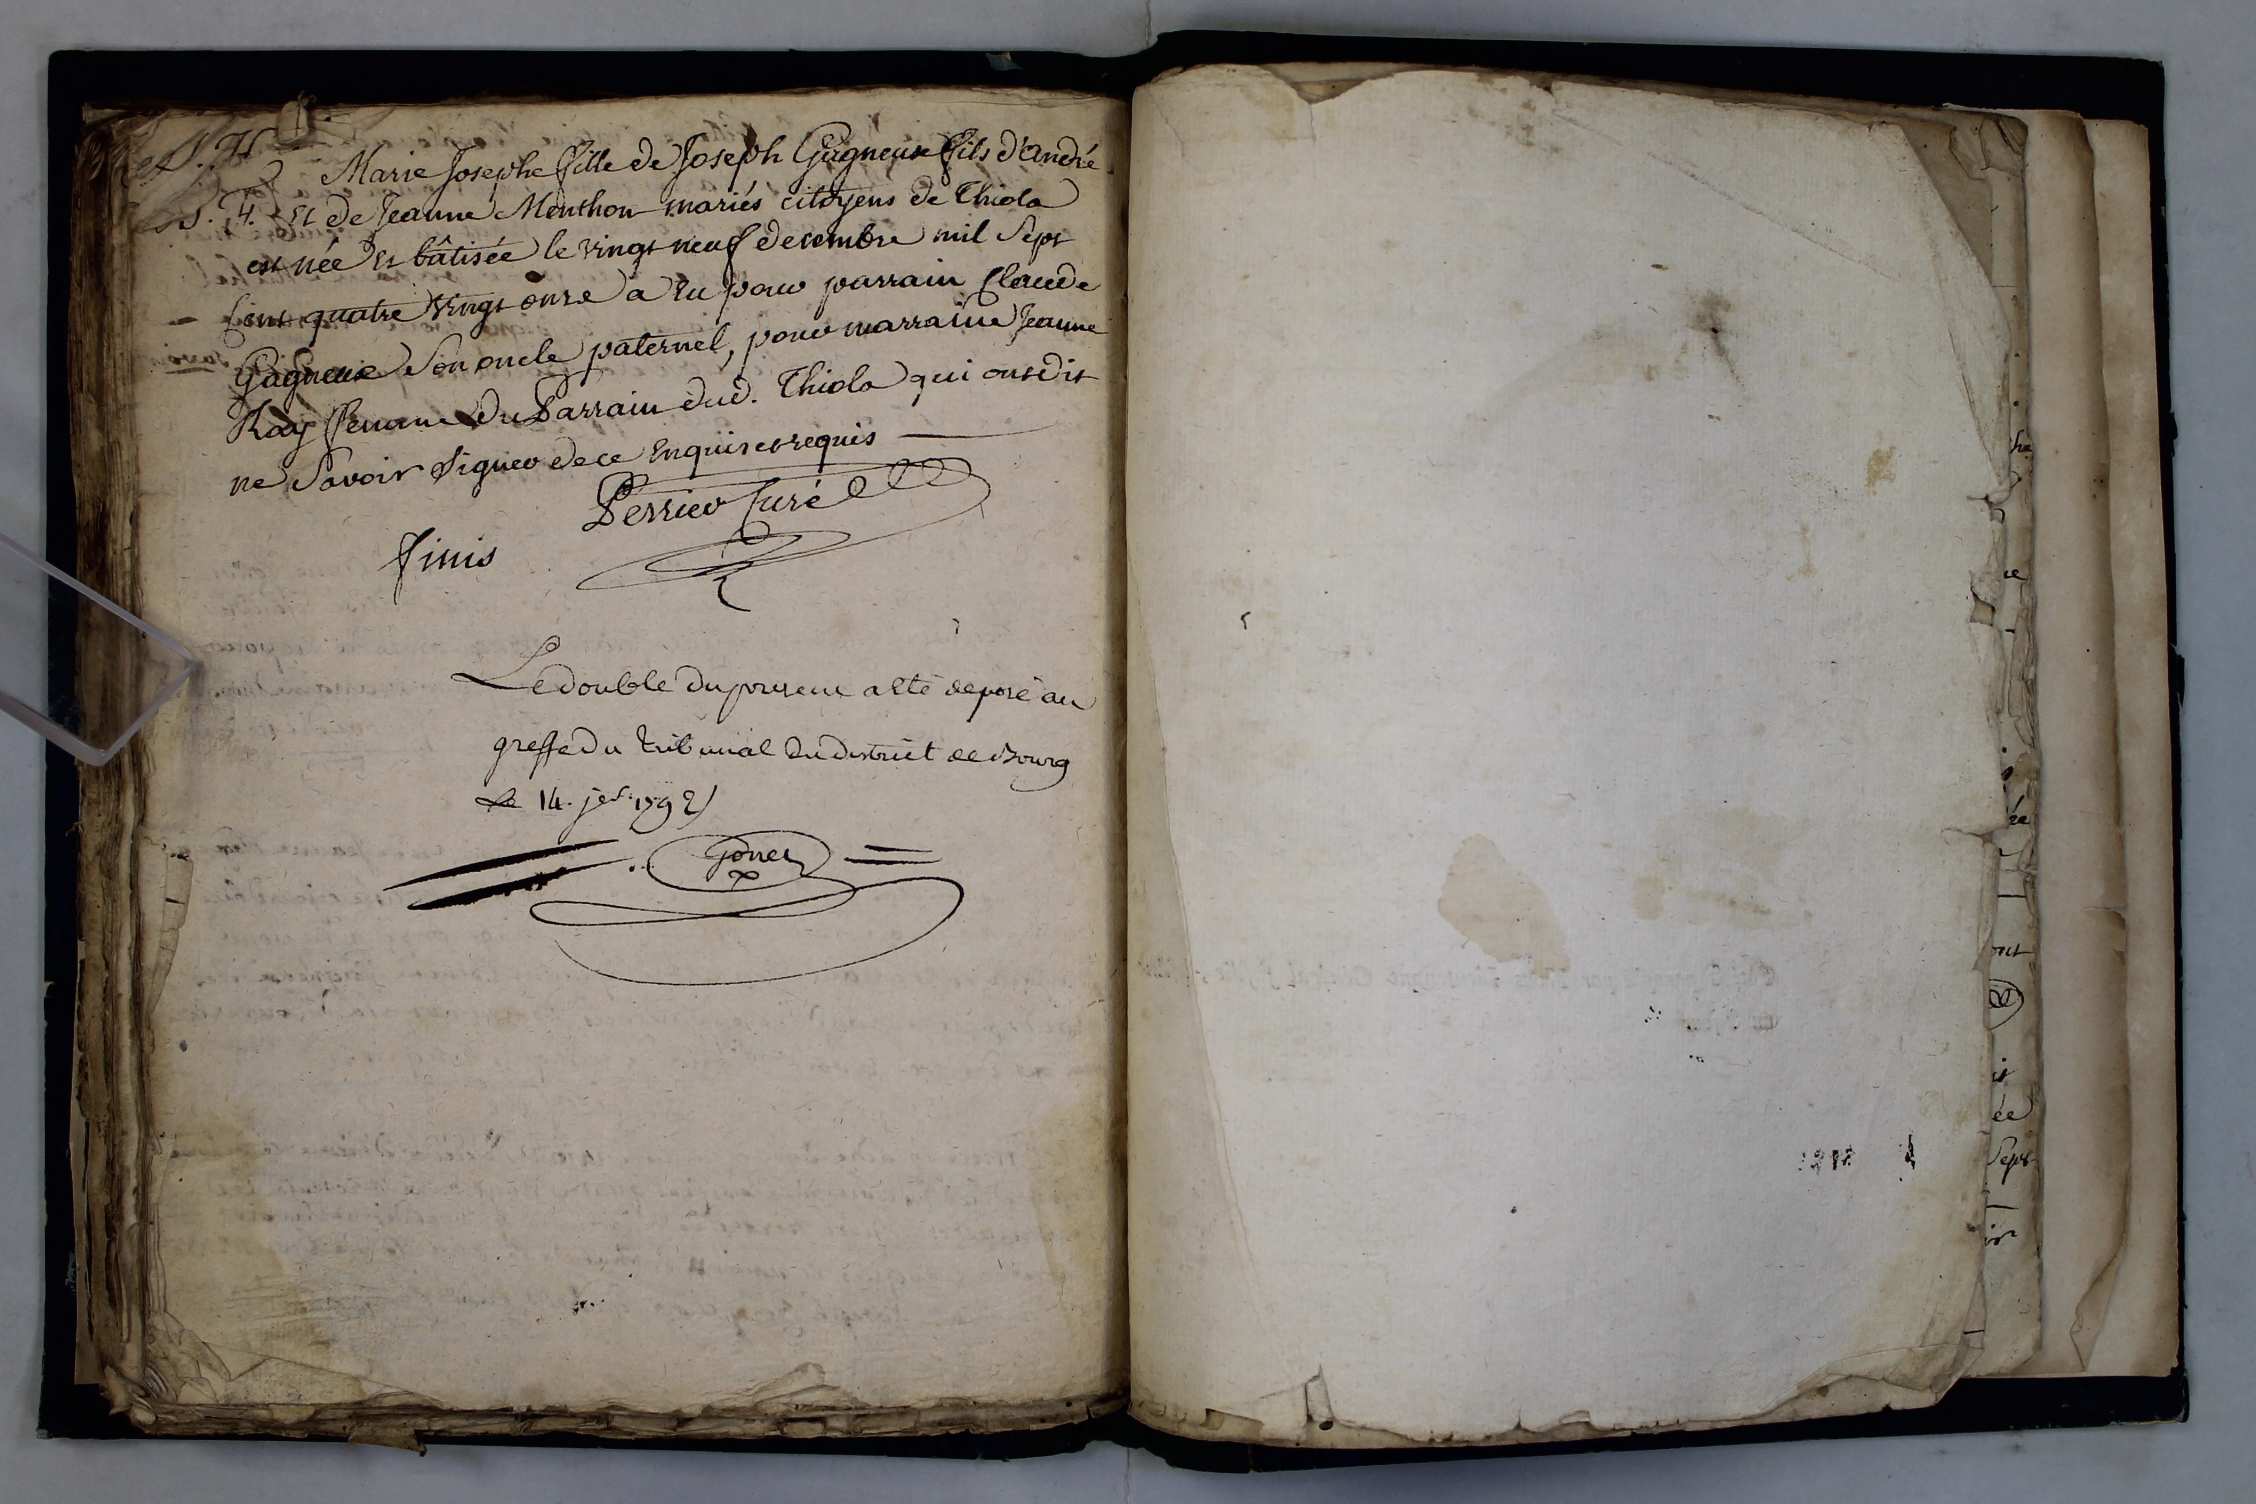 S. H
Marie Josephe fille de Joseph Gagneux fils d'andré
S. H. et de Jeanne Menthon mariés citoyens de Thiola
est née et bâtisée le vingt neuf decembre mil Sept
Cent quatre vingt onze a eu pour parrain Claude
Gagneux Son oncle paternel, pour marraine Jeanne
Ray femme du Parrain dud. Thiola qui ont dit
ne Savoir Signer de ce enquis et requis
Perrier Curé
finis
Le double du present a eté deposé au
greffe du tribunal du district de Bourg
Le 14. jer. 1792
Gonet
he
ce
ée
ont
it
ée
Sept